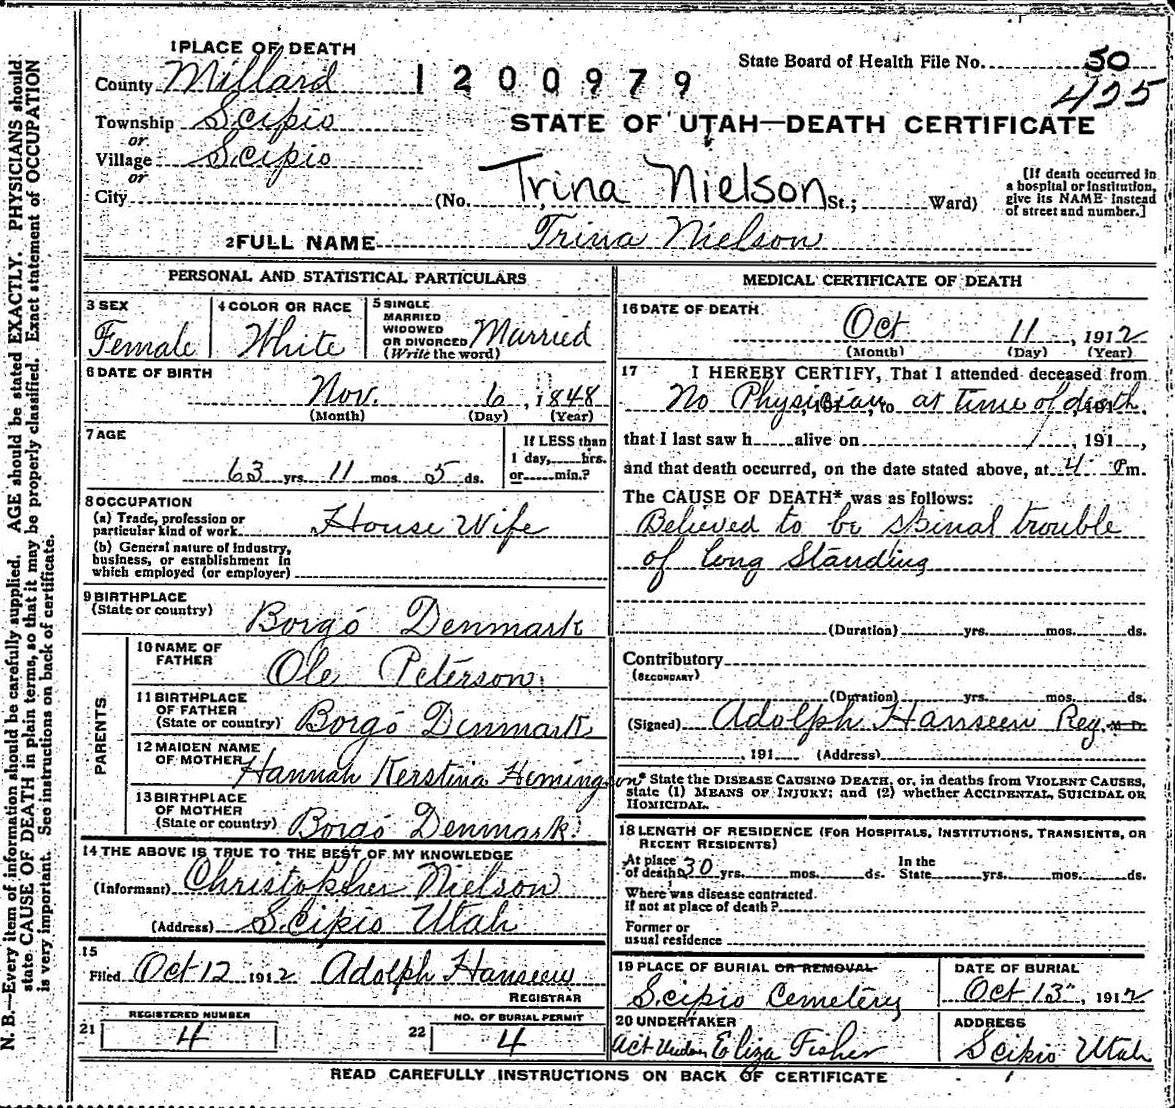 N. B.—Every item of information should be carefully supplied. AGE should be stated EXACTLY. PHYSICIANS should
state CAUSE OF DEATH in plain terms, so that it may be properly classified. Exact statement of OCCUPATION
is very important. See instructions on back of certificate.
1 PLACE OF DEATH
County Millard
1200979
State Board of Health File No. 50
425
Township Scipio
or
Village Scipio
or
City
STATE OF UTAH—DEATH CERTIFICATE
(No. Trina Nielson St.; Ward)
[If death occurred in
a hospital or institution,
give its NAME instead
of street and number.]
2 FULL NAME Trina Nielson
PERSONAL AND STATISTICAL PARTICULARS
3 SEX
Female
4 COLOR OR RACE
White
5 SINGLE
MARRIED
WIDOWED
OR DIVORCED
(Write the word)
Married
6 DATE OF BIRTH
Nov. 6, 1848
(Month) (Day) (Year)
7 AGE
63 yrs. 11 mos. 5 ds.
If LESS than
1 day, hrs.
or min.?
8 OCCUPATION
(a) Trade, profession or
particular kind of work House Wife
(b) General nature of industry,
business, or establishment in
which employed (or employer)
9 BIRTHPLACE
(State or country) Borgó Denmark
PARENTS
10 NAME OF
FATHER Ole Peterson
11 BIRTHPLACE
OF FATHER
(State or country) Borgó Denmark
12 MAIDEN NAME
OF MOTHER Hannah Kerstina Hemingson
13 BIRTHPLACE
OF MOTHER
(State or country) Borgó Denmark
14 THE ABOVE IS TRUE TO THE BEST OF MY KNOWLEDGE
(Informant) Christokher Nielson
(Address) Scipio Utah
15
Filed Oct 12 1912 Adolph Hanseen
REGISTRAR
21 REGISTERED NUMBER
4
22 NO. OF BURIAL PERMIT
4
MEDICAL CERTIFICATE OF DEATH
16 DATE OF DEATH
Oct 11, 1912
(Month) (Day) (Year)
17 I HEREBY CERTIFY, That I attended deceased from
No Physician at time of death
that I last saw h alive on , 191 ,
and that death occurred, on the date stated above, at 4 P m.
The CAUSE OF DEATH* was as follows:
Believed to be spinal trouble
of long Standing
(Duration) yrs. mos. ds.
Contributory
(SECONDARY)
(Duration) yrs. mos. ds.
(Signed) Adolph Hanseen Reg. M. D.
, 191 (Address)
* State the DISEASE CAUSING DEATH, or, in deaths from VIOLENT CAUSES,
state (1) MEANS OF INJURY; and (2) whether ACCIDENTAL, SUICIDAL OR
HOMICIDAL.
18 LENGTH OF RESIDENCE (FOR HOSPITALS, INSTITUTIONS, TRANSIENTS, OR
RECENT RESIDENTS)
At place
of death 30 yrs. mos. ds.
In the
State yrs. mos. ds.
Where was disease contracted,
if not at place of death?
Former or
usual residence
19 PLACE OF BURIAL OR REMOVAL
Scipio Cemetery
DATE OF BURIAL
Oct 13, 1912
20 UNDERTAKER
Act Eliza Fisher
ADDRESS
Scipio Utah
READ CAREFULLY INSTRUCTIONS ON BACK OF CERTIFICATE